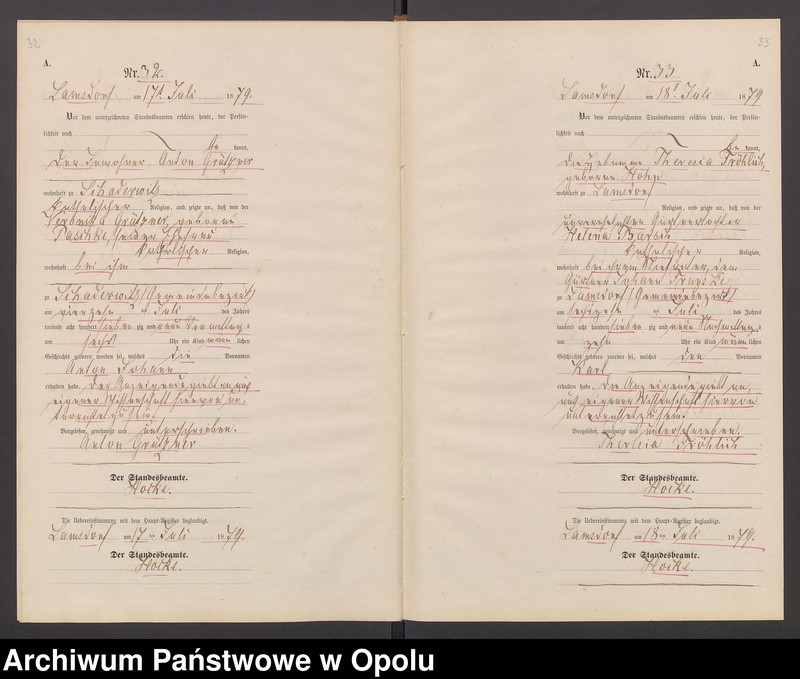 32
A.
Nr. 32.
Lamsdorf am 17t. Juli 1879.
Vor dem unterzeichneten Standesbeamten erschien heute, der Persön-
lichkeit nach
be kannt,
der Inwohner Anton Grützner
wohnhaft zu Schaderwitz
katholischer Religion, und zeigte an, daß von der
Veronika Grützner, geborene
Paschke, seiner Ehefrau
katholischer Religion,
wohnhaft bei ihm
zu Schaderwitz (Gemeindebezirk)
am vierzehn ten Juli des Jahres
tausend acht hundert sieben zig und neun Vormittags
um sechs Uhr ein Kind männ lichen
Geschlechts geboren worden sei, welches die Vornamen
Anton Johann
erhalten habe. Der Anzeigende giebt an, aus
eigener Wissenschaft hiervon un-
terrichtet zu sein.
Vorgelesen, genehmigt und unterschrieben.
Anton Grützner
Der Standesbeamte.
Hocke.
Die Uebereinstimmung mit dem Haupt-Register beglaubigt.
Lamsdorf am 17 ten Juli 1879.
Der Standesbeamte.
Hocke.
33
A.
Nr. 33
Lamsdorf am 18t. Juli 1879
Vor dem unterzeichneten Standesbeamten erschien heute, der Persön-
lichkeit nach
be kannt,
die Hebamme Theresia Fröhlich,
geborene
wohnhaft zu Lamsdorf
Religion, und zeigte an, daß von der
unverehelichten
Helena
katholischer Religion,
wohnhaft bei ihrem dem
Johann
zu Lamsdorf (Gemeindebezirk)
am sechszehn ten Juli des Jahres
tausend acht hundert sieben zig und neun Nachmittags
um zehn Uhr ein Kind männ lichen
Geschlechts geboren worden sei, welches den Vornamen
Karl
erhalten habe. Die Anzeigende giebt an,
aus eigener Wissenschaft hiervon
unterrichtet zu sein.
Vorgelesen, genehmigt und unterschrieben.
Theresia Fröhlich
Der Standesbeamte.
Hocke.
Die Uebereinstimmung mit dem Haupt-Register beglaubigt.
Lamsdorf am 18 ten Juli 1879.
Der Standesbeamte.
Hocke.
Archiwum Państwowe w Opolu